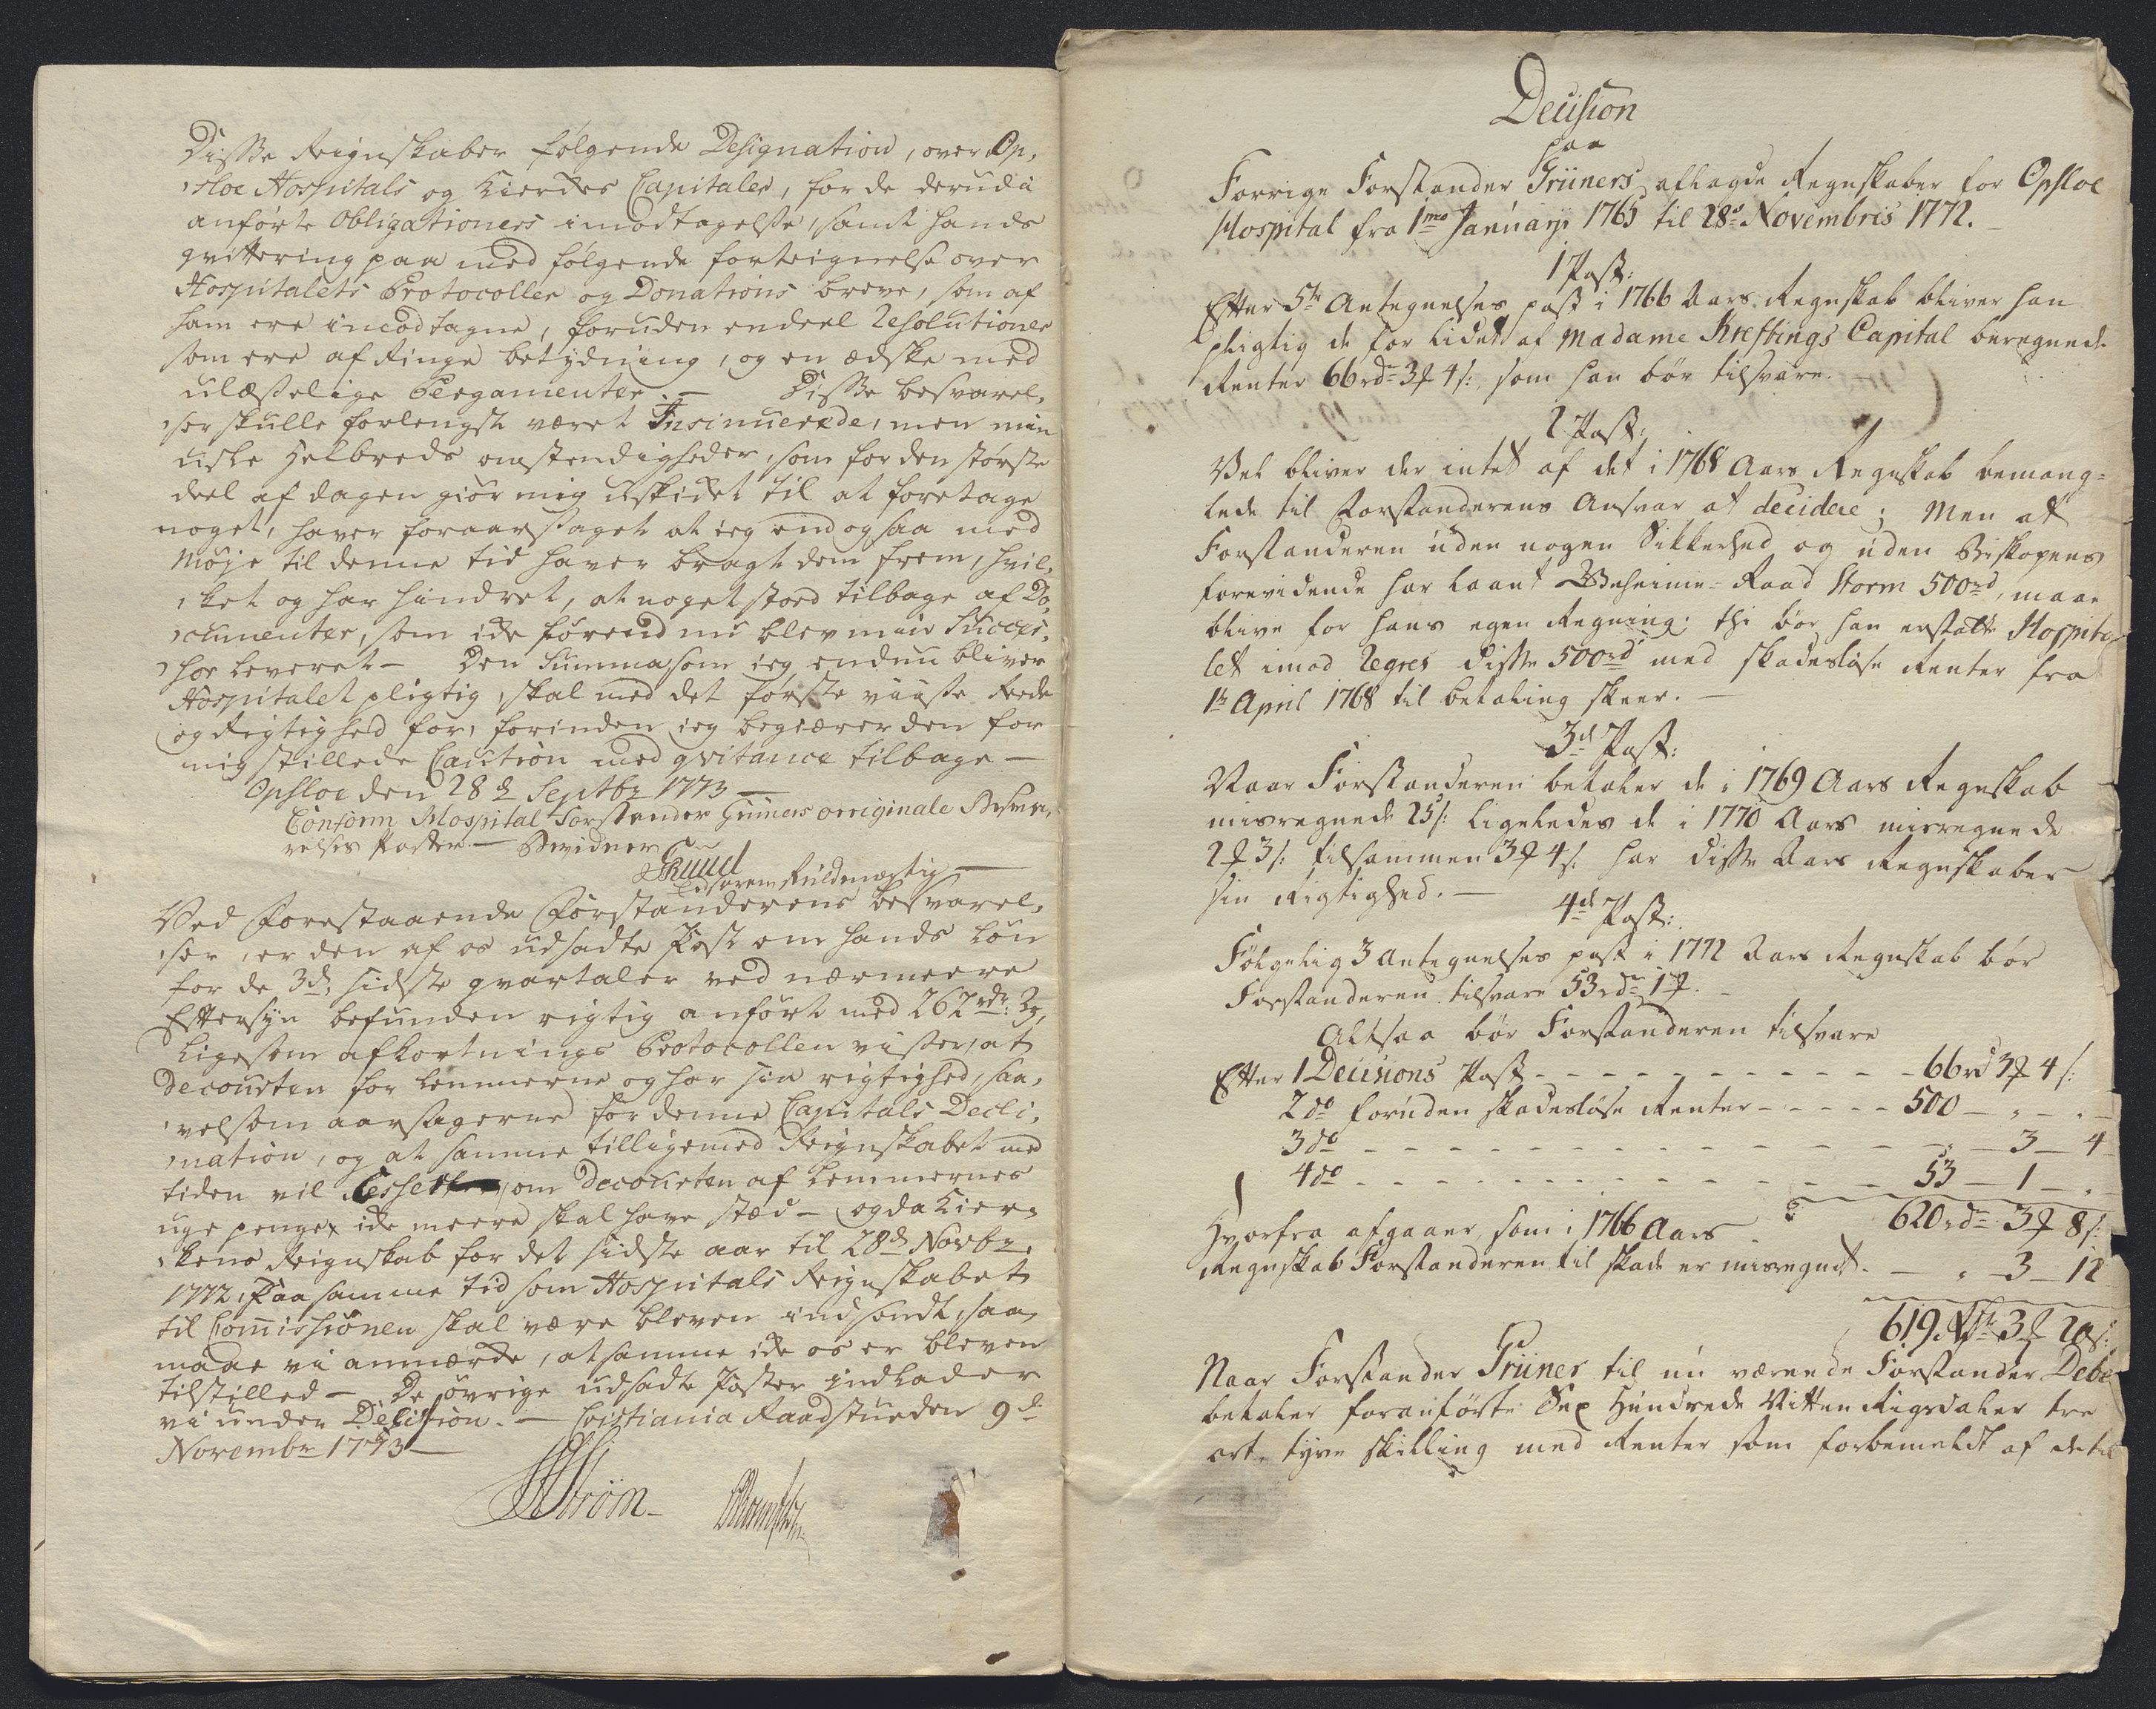 Disse Reignskaber følgende Designation, over Op,
sloe Hospitals og Kierckes Capitaler, for de derudi
anførte Obligationers imodtagelse, samt hands
qvittering paa med følgende forteignelse over
Hospitalets Protocoller og Donations breve, som af
ham ere imodtagne, foruden endeel Resolutioner
som ere af Ringe betydning, og en ædske med
ulæselige Pergamenter. — Disse besvarel,
ser skulle forlengst været Insinuerede, men min
uisle Helbreds omstendigheder, som for den største
deel af dagen giør mig uskicket til at foretage
noget, haver foraarsaget at ieg end ogsaa med
Møye til denne tid haver bragt dem frem, hvil,
ket og har hindret, at noget stoed tilbage af Do,
cumenter, som icke førend nu blev min Succes,
sor leveret — Den Summa som ieg endnu bliver
Hospitalet pligtig, skal med det første vorde Rede
og Rigtighed for, forinden ieg begiærer den for
mig stillede Caution med qvitance tilbage —
Opsloe den 28de Septbr 1773 —
Conform Hospital Forstander Grüners originale Besva,
relses Poster — Bevidner
Ruud
Fuldmægtig —
Ved Forestaaende Forstanderens besvarel,
ser, er den af os udsadte Post om hands Løn
for de 3de sidste qvartaler ved nærmeere
Eftersyn befunden rigtig anført med 262 rdr 3,
ligesom afkortnings Protocollen viser, at
Decourten for Lemmerne og har sin rigtighed, saa,
velsom aarsagerne for denne Capitals Decli,
nation, og at samme tilligemed Reignskabet med
tiden vil Cessere, om Decourten af Lemmernes
uge penger icke meere skal have stæd — og da Kier,
kens Reignskab for det sidste aar til 28de Novbr
1772, Paa samme tid som Hospitals Reignskabet
til Commissionen skal være bleven indsendt, saa
maae vi anmærke, at samme icke os er bleven
tilstilled — De øvrige udsadte Poster indlader
vi under Decision. — Cristiania Raadstuen den 9de
Novembr 1773 —
Strøm —
Decision
paa
Forrige Forstander Grüners aflagde Regnskaber for Opsloe
Hospital fra 1mo Januarji 1765 til 28de Novembris 1772. —
1 Post:
Efter 5te Antegnelses post i 1766 Aars Regnskab bliver han
pligtig de for lidet af Madame Kreftings Capital beregnede
Renter 66 rdr 3 ₰ 4 s: som han bør tilsvare. —
2 Post:
Vel bliver der intet af det i 1768 Aars Regnskab bemang=
lede til Forstanderens Ansvar at decidere; Men at
Forstanderen uden nogen Sikkerhed og uden Biskopens
forevidende har laant Geheime=Raad Storm 500 rd, maae
blive for hans egen Regning: thi bør han erstatte Hospita
let imod Regres disse 500 rd med skadesløse Renter fra
1te April 1768 til betaling skeer. —
3de Post:
Naar Forstanderen betaler de i 1769 Aars Regnskab
misregnede 25 s: ligeledes de i 1770 Aars misregnede
2 ₰ 3 s: tilsammen 3 ₰ 4 s: har disse Aars Regnskaber
sin Rigtighed. —
4de Post:
Følgelig 3 Antegnelses post i 1772 Aars Regnskab bør
Forstanderen tilsvare 53 rdr 1 ₰. —
Altsaa bør Forstanderen tilsvare
Efter 1 Decisions Post - - - - - - 66 rd 3 ₰ 4 s:
2 do foruden skadesløse Renter - - - - - 500 — „ — „
3 do - - - - - - „ — 3 — 4
4 do - - - - - - 53 — 1 — „
620 rdr 3 ₰ 8 s:
Hvorfra afgaaer, som i 1766 Aars
Regnskab Forstanderen til skade er misregnet. — „ — 3 — 12
619 Rdr 3 ₰ 20 s:
Naar Forstander Grüner til nu værende Forstander Debe
betaler foranførte Sex Hundrede Nitten Rigsdaler tre
ort, tyve skilling med Renter som forbemeldt af de til